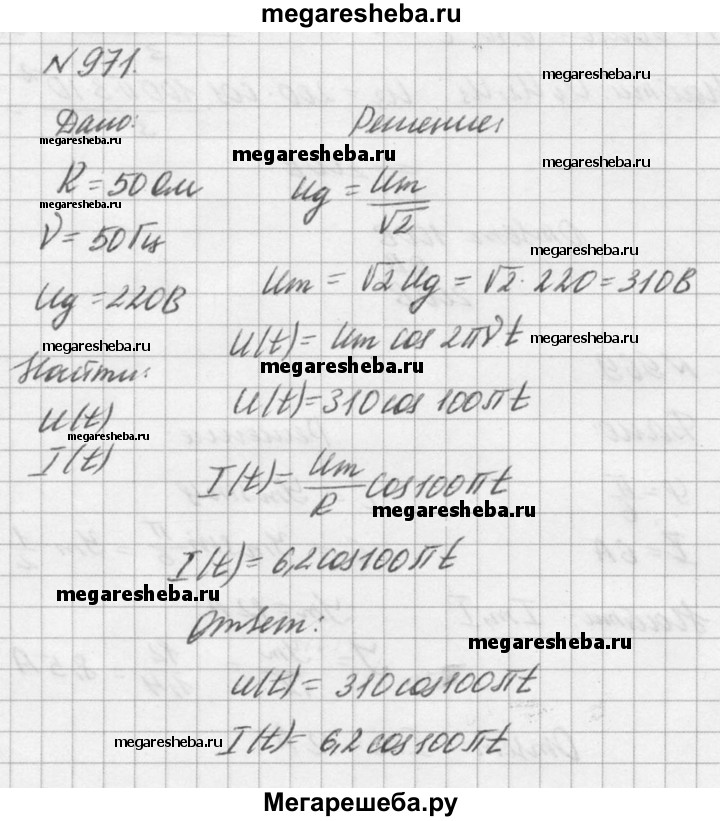 megaresheba.ru
N 971.
megaresheba.ru
Дано:
Решение:
megaresheba.ru
megaresheba.ru
megaresheba.ru
R = 50 Ом
Uд = Um/√2
ν = 50 Гц
megaresheba.ru
Uд = 220 В
Um = √2 Uд = √2 · 220 = 310 В
U(t) = Um cos 2πνt
megaresheba.ru
megaresheba.ru
Найти:
megaresheba.ru
U(t)
U(t) = 310 cos 100πt
megaresheba.ru
I(t)
I(t) = Um/R cos 100πt
megaresheba.ru
I(t) = 6,2 cos 100πt
megaresheba.ru
Ответ:
megaresheba.ru
U(t) = 310 cos 100πt
I(t) = 6,2 cos 100πt
megaresheba.ru
megaresheba.ru
Мегарешеба.ру